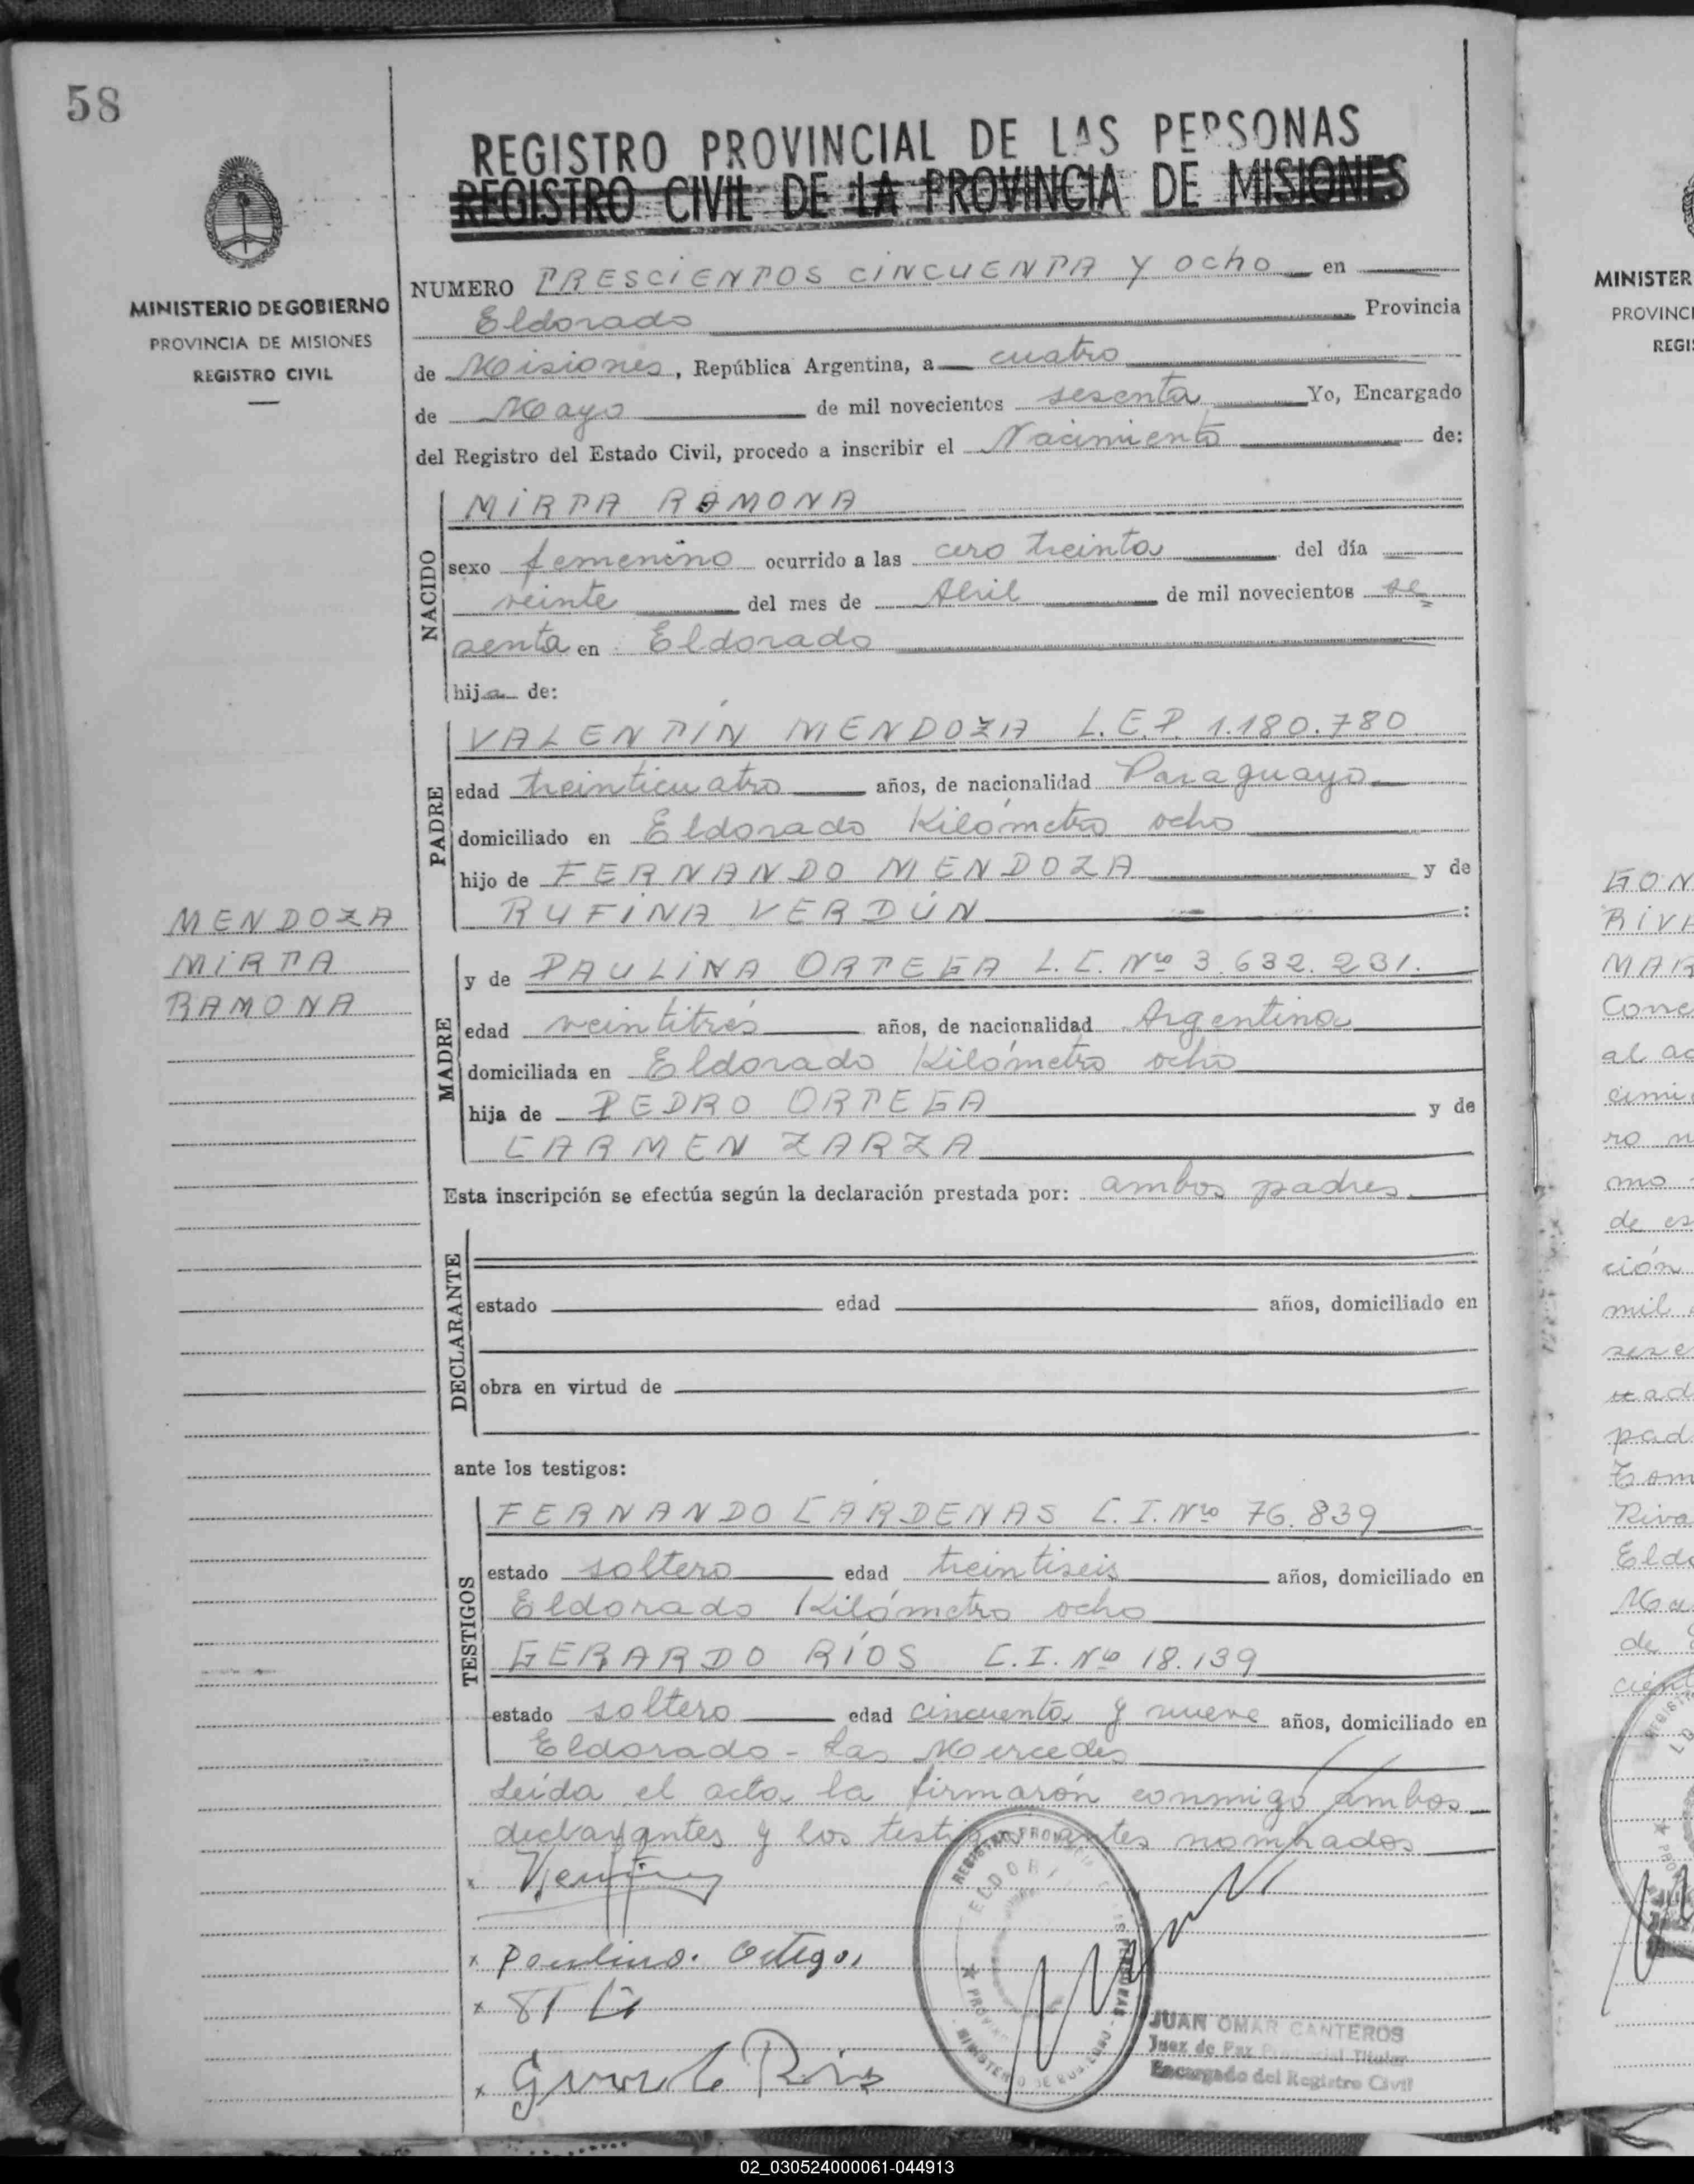 58
REGISTRO PROVINCIAL DE LAS PERSONAS
REGISTRO CIVIL DE LA PROVINCIA DE MISIONES
MINISTERIO DE GOBIERNO
PROVINCIA DE MISIONES
REGISTRO CIVIL
NUMERO TRESCIENTOS CINCUENTA Y OCHO en
Eldorado Provincia
de Misiones, República Argentina, a cuatro
de Mayo de mil novecientos sesenta Yo, Encargado
del Registro del Estado Civil, procedo a inscribir el Nacimiento de:
NACIDO
MIRTA RAMONA
sexo femenino ocurrido a las cero treinta del día
veinte del mes de Abril de mil novecientos se
senta en Eldorado
hija de:
PADRE
VALENTÍN MENDOZA L.E.P. 1.180.780
edad treinticuatro años, de nacionalidad Paraguayo
domiciliado en Eldorado Kilómetro ocho
hijo de FERNANDO MENDOZA y de
RUFINA VERDÚN :
MENDOZA
MIRTA
RAMONA
MADRE
y de PAULINA ORTEGA L.C. Nro 3.632.231.
edad veintitrés años, de nacionalidad Argentina
domiciliada en Eldorado Kilómetro ocho
hija de PEDRO ORTEGA y de
CARMEN ZARZA
Esta inscripción se efectúa según la declaración prestada por: ambos padres
DECLARANTE
estado edad años, domiciliado en
obra en virtud de
ante los testigos:
TESTIGOS
FERNANDO CÁRDENAS C.I. Nro 76.839
estado soltero edad treintiseis años, domiciliado en
Eldorado Kilómetro ocho
GERARDO RÍOS C.I. Nro 18.139
estado soltero edad cincuenta y nueve años, domiciliado en
Eldorado - Las Mercedes
Leída el acta la firmarón conmigo ambos
declarantes y los testigos antes nombrados
x
x Paulina Ortega
x
x Gerardo Rios
JUAN OMAR CANTEROS
Juez de Paz Provincial Titular
Encargado del Registro Civil
MINISTER
PROVINCI
REGIS
GON
RIVA
MAR
Conc
al ac
cimi
ro n
mo
de es
ción
mil
sese
pad
Riva
Eldo
Ma
de
cient
02_030524000061-044913